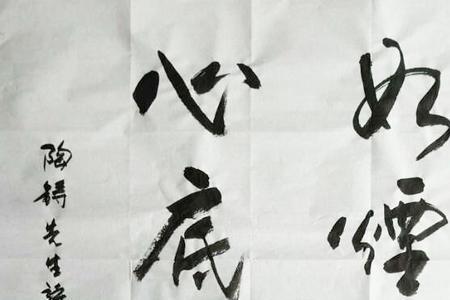 如煙
心底
陶鑄先生詩